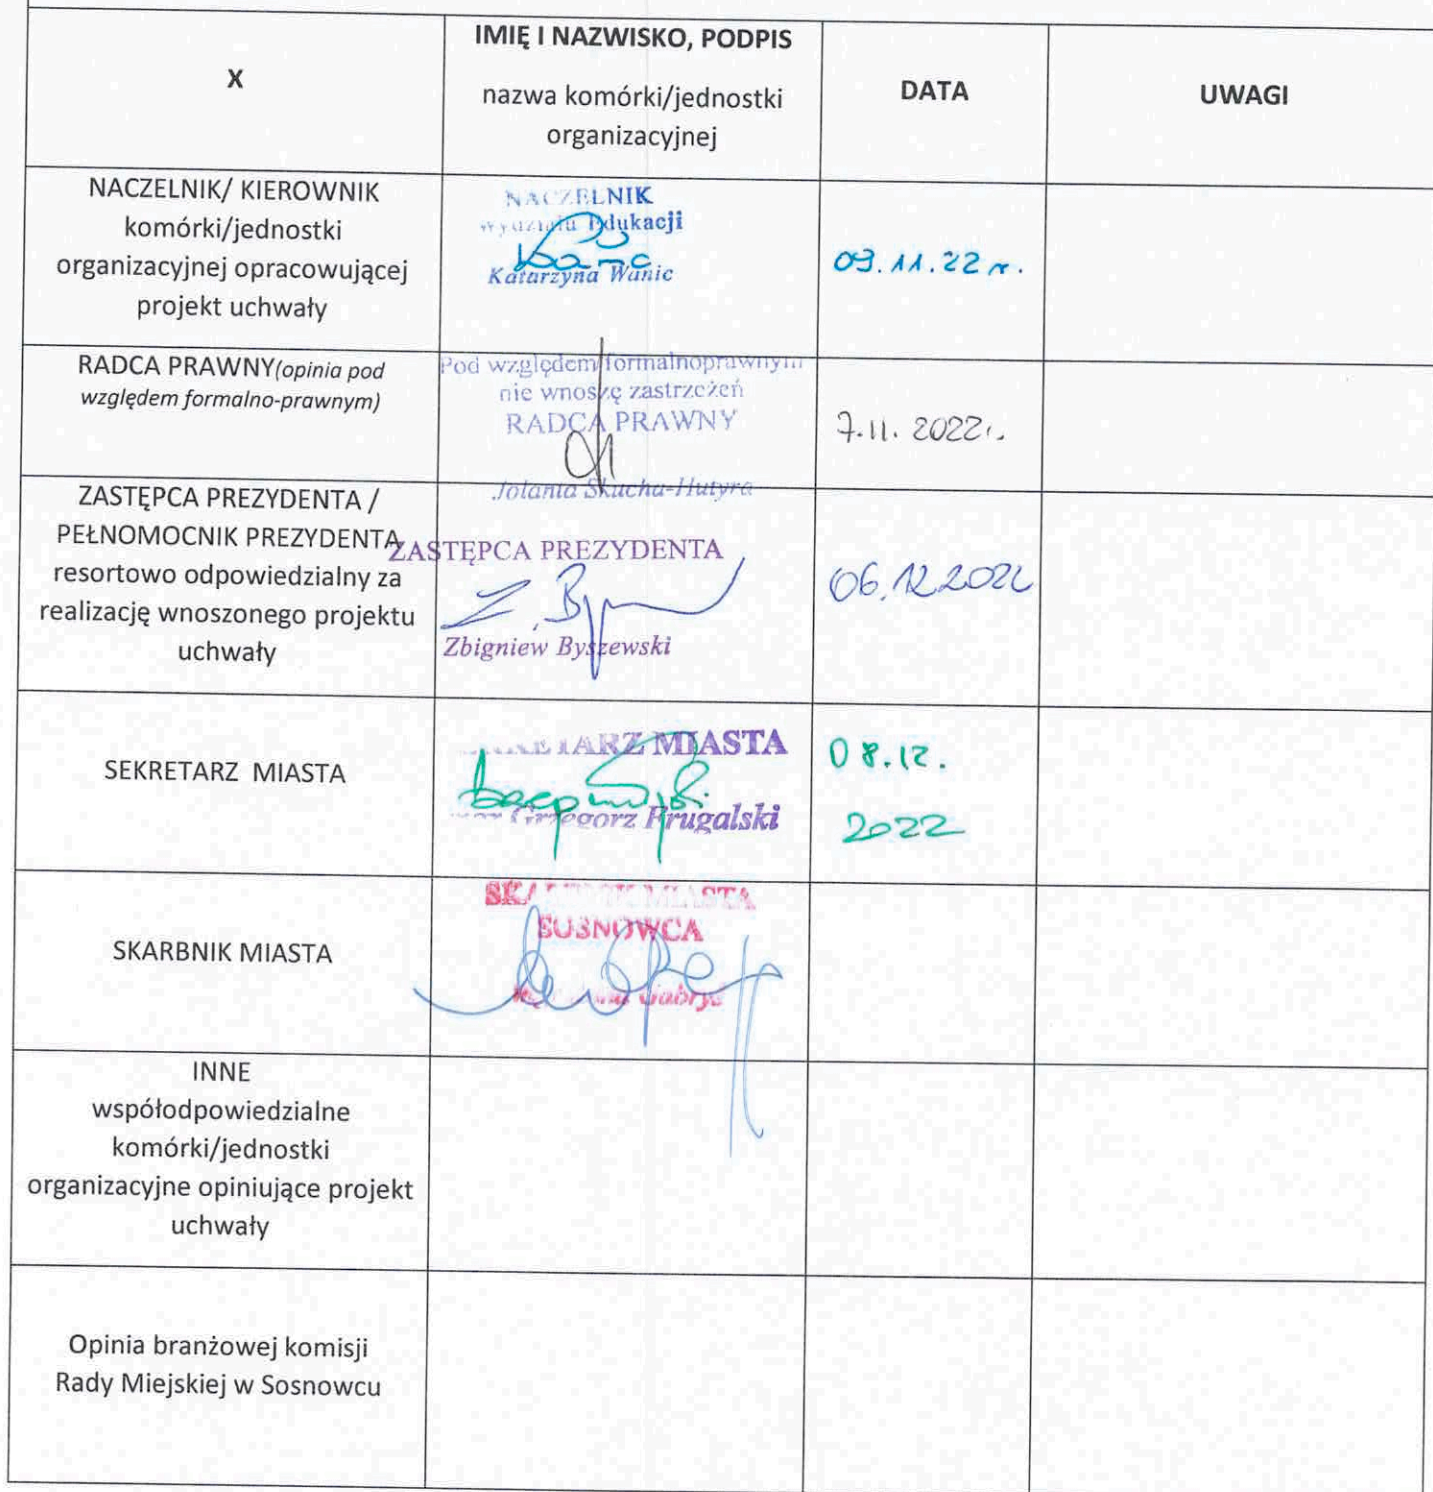 X
IMIĘ I NAZWISKO, PODPIS
nazwa komórki/jednostki
organizacyjnej
DATA
UWAGI
NACZELNIK/ KIEROWNIK
komórki/jednostki
organizacyjnej opracowującej
projekt uchwały
NACZELNIK
Wydziału Edukacji
Katarzyna Wanic
03.11.22 r.
RADCA PRAWNY(opinia pod
względem formalno-prawnym)
Pod względem formalnoprawnym
nie wnoszę zastrzeżeń
RADCA PRAWNY
Jolanta Skucha-Hutyra
7.11.2022r.
ZASTĘPCA PREZYDENTA /
PEŁNOMOCNIK PREZYDENTA
resortowo odpowiedzialny za
realizację wnoszonego projektu
uchwały
ZASTĘPCA PREZYDENTA
Z. By
Zbigniew Byszewski
06.12.2022
SEKRETARZ MIASTA
SEKRETARZ MIASTA
Grzegorz Frugalski
08.12.
2022
SKARBNIK MIASTA
SKARBNIK MIASTA
SOSNOWCA
Gabryś
INNE
współodpowiedzialne
komórki/jednostki
organizacyjne opiniujące projekt
uchwały
Opinia branżowej komisji
Rady Miejskiej w Sosnowcu